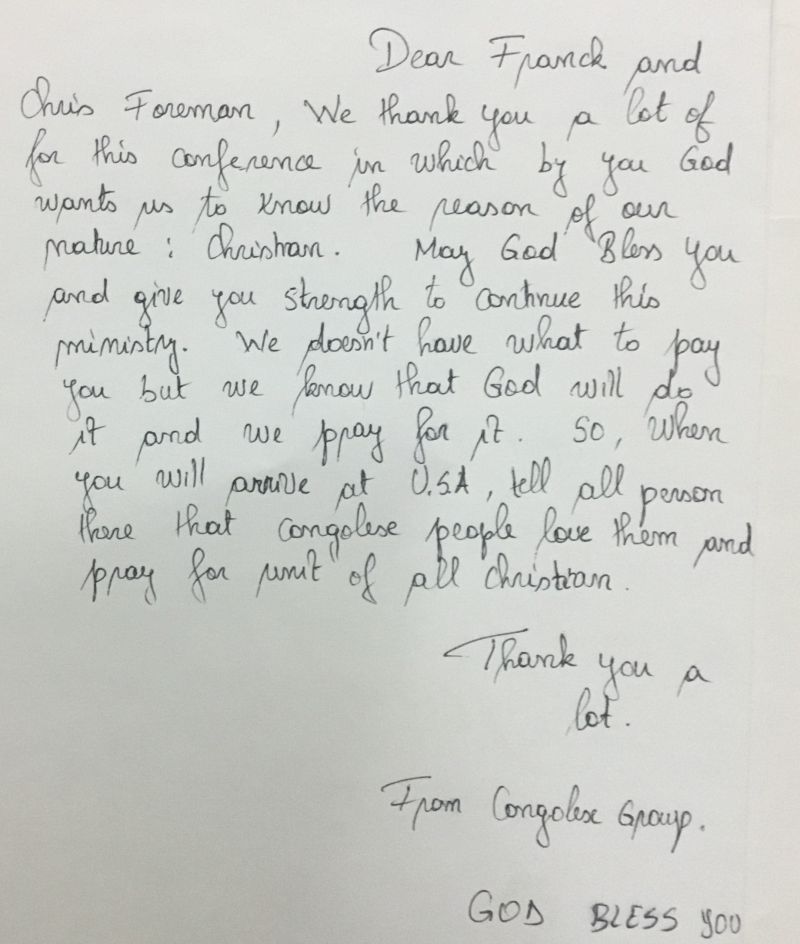 Dear Franck and
Chris Foreman, We thank you a lot of
for this conference in which by you God
wants us to know the reason of our
nature : Christian. May God Bless you
and give you strength to continue this
ministry. We doesn't have what to pay
you but we know that God will do
it and we pray for it. So, when
you will arrive at U.SA, tell all person
there that congolese people love them and
pray for unit of all christian.
Thank you a
lot.
From Congolese Group.
GOD BLESS YOU